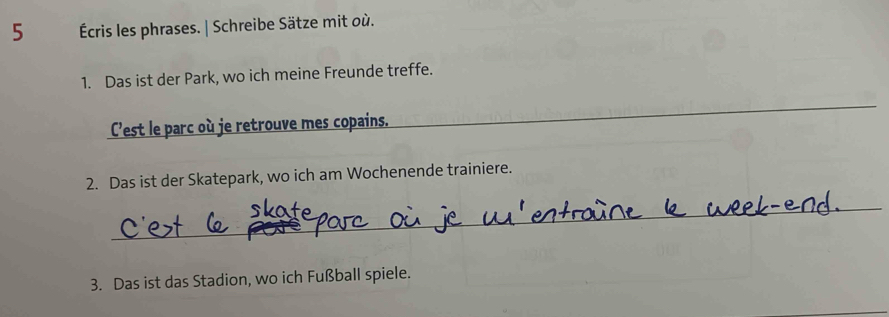 5 Écris les phrases. | Schreibe Sätze mit où.
1. Das ist der Park, wo ich meine Freunde treffe.
C'est le parc où je retrouve mes copains.
2. Das ist der Skatepark, wo ich am Wochenende trainiere.
C'est le skateparc où je m'entraîne le week-end.
3. Das ist das Stadion, wo ich Fußball spiele.